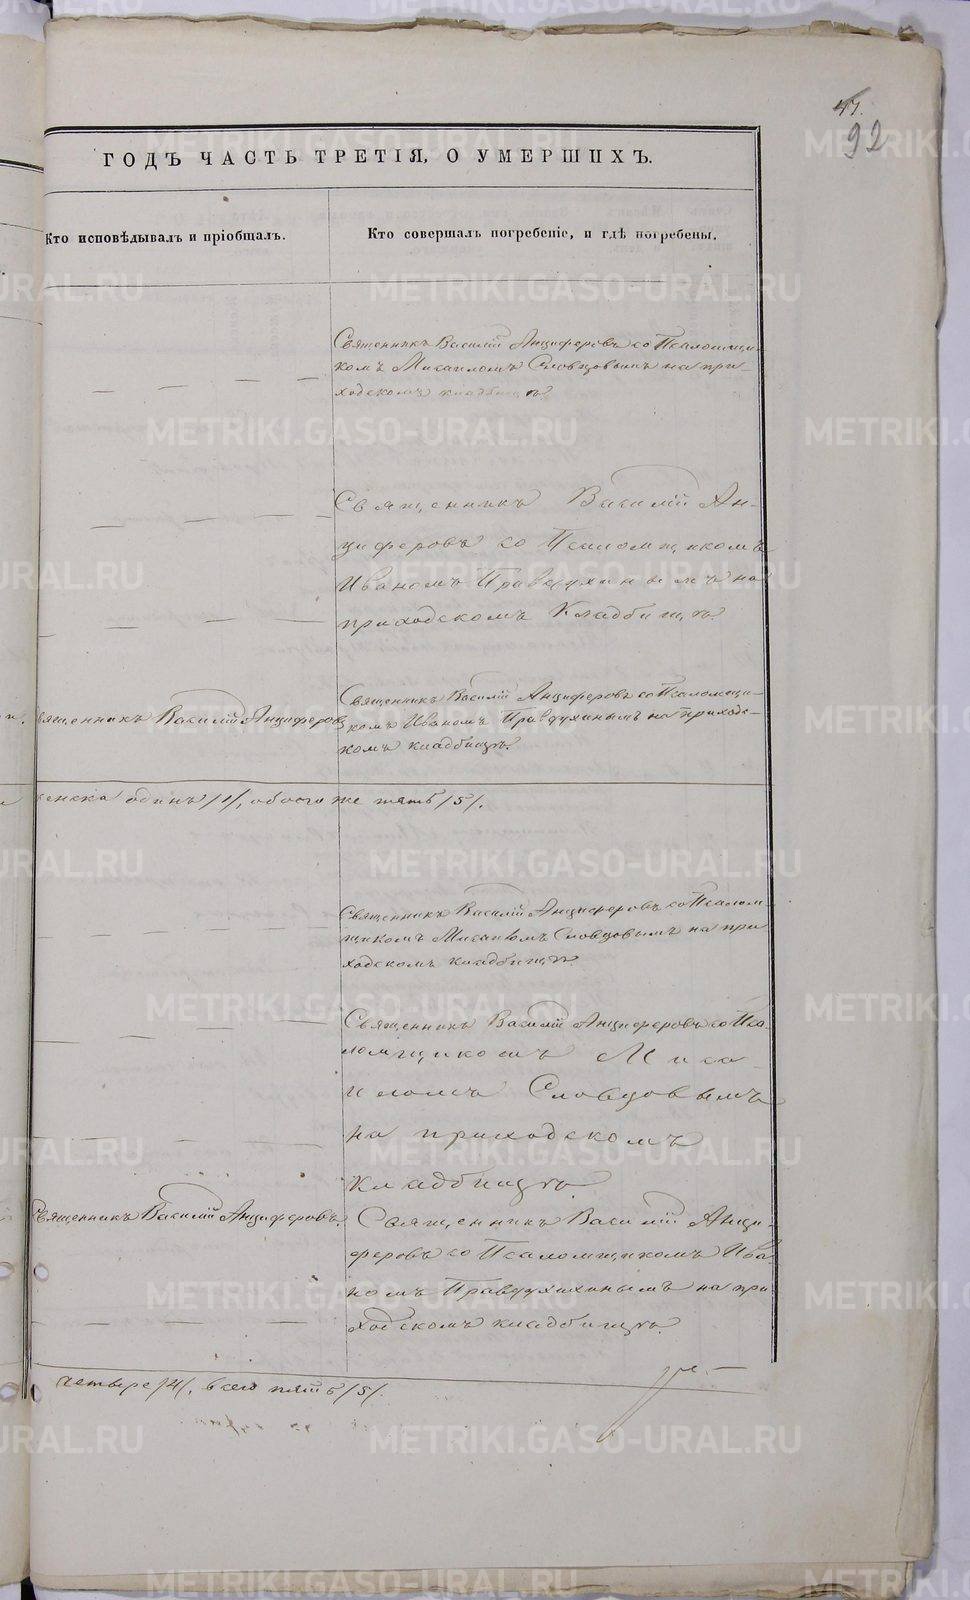 47.
92
ГОДЪ ЧАСТЬ ТРЕТІЯ, О УМЕРШИХЪ.
Кто исповѣдывалъ и пріобщалъ.
Кто совершалъ погребеніе, и гдѣ погребены.
Священникъ Василій Анциферовъ со Псаломщи-
комъ Мисаиломъ Словцовымъ на при-
ходскомъ кладбищѣ.
Священникъ Василій Ан-
циферовъ со Псаломщикомъ
Иваномъ Правдухинымъ на
приходскомъ Кладбищѣ.
Священникъ Василій Анциферовъ
Священникъ Василій Анциферовъ со Псаломщи-
комъ Иваномъ Правдухинымъ на приходс-
комъ кладбищѣ.
женска одинъ /1/, обоего же пять /5/.
Священникъ Василій Анциферовъ со Псалом-
щикомъ Мисаиломъ Словцовымъ на при
ходскомъ кладбищѣ.
Священникъ Василій Анциферовъ со Пса-
ломщикомъ Миса-
иломъ Словцовымъ
на приходскомъ
Кладбищѣ.
Священникъ Василій Анциферовъ.
Священникъ Василій Анци-
феровъ со Псаломщикомъ Ива
номъ Правдухинымъ на при
ходскомъ кладбищѣ.
четыре /4/, всего пять /5/.
METRIKI.GASO-URAL.RU